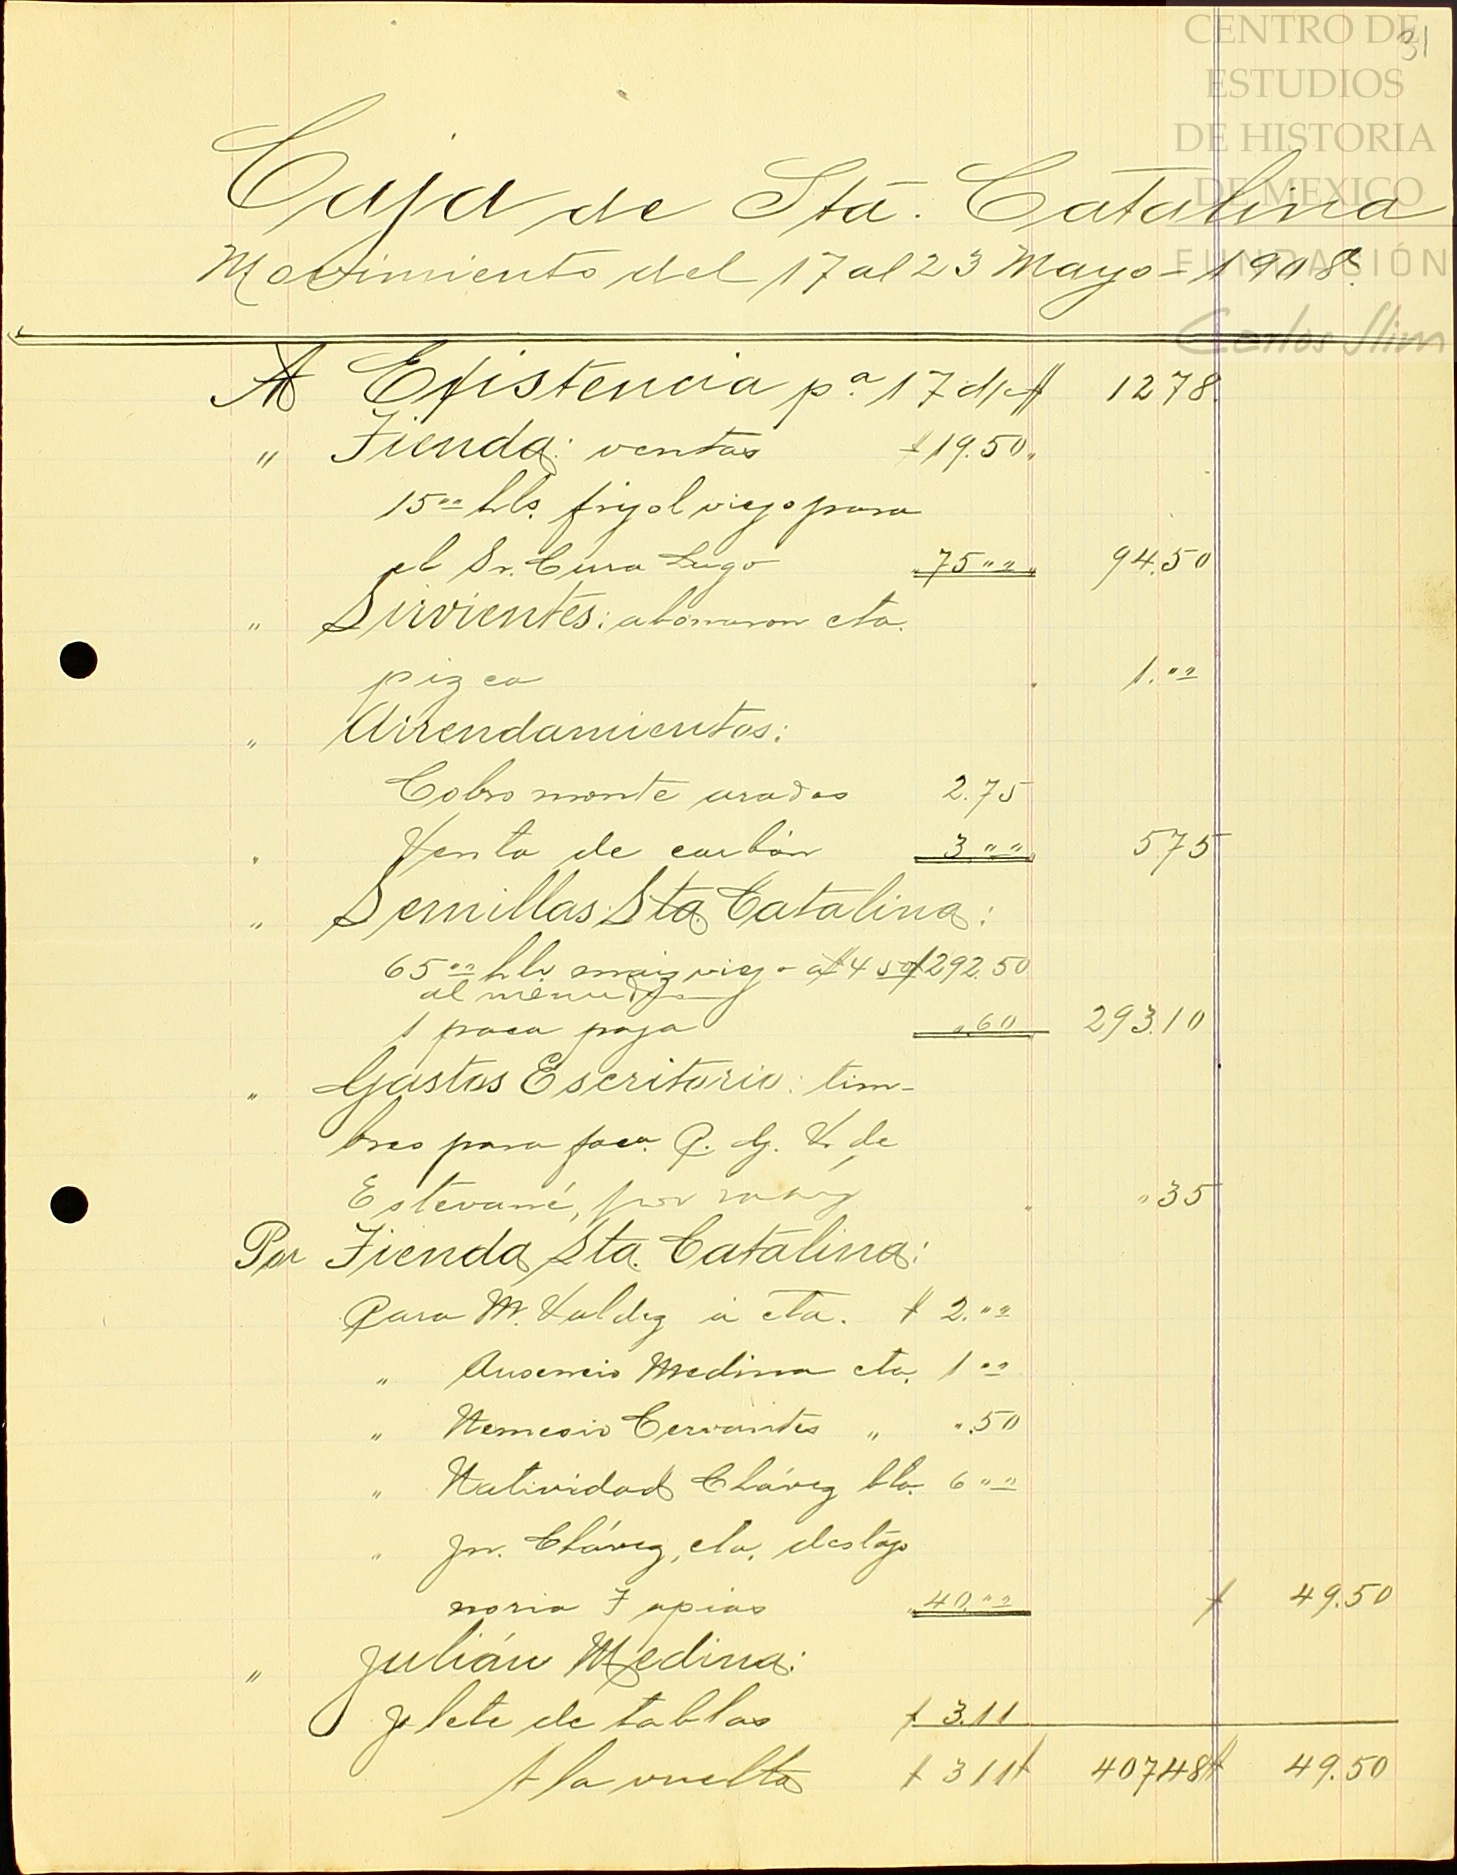 CENTRO DE
ESTUDIOS
DE HISTORIA
DE MEXICO
FUNDACIÓN
Carlos Slim
31
Caja de Sta. Catalina
Movimiento del 17 al 23 Mayo - 1908.
A Existencia pa. 17 $ 1278
" Tienda: ventas $19.50
15 "" hls. frijol viejo para
el Sr. Cura Lugo 75 "" 94.50
" Sirvientes: abonaron cta.
pizca 1. ""
" Arrendamientos:
Cobro monte arados 2.75
" Venta de carbón 3 "" 575
" Semillas Sta. Catalina:
65 "" hls. maiz viejo a $4 50 $292.50
al menudeo
1 paca paja .60 293.10
" Gastos Escritorio: tim-
bres para faca. P. G. V. de
Estevané, por maiz " 35
Por Tienda Sta. Catalina:
Para M. Valdez á cta. $ 2. ""
" Ausencio Medina cta. 1 ""
" Nemesio Cervantes " " .50
" Natividad Chávez 6 ""
" Jn. Chávez, cta. destajo
noria Tapias 40. "" $ 49.50
" Julián Medina:
flete de tablas $ 3.11
A la vuelta $ 311 $ 40748 $ 49.50